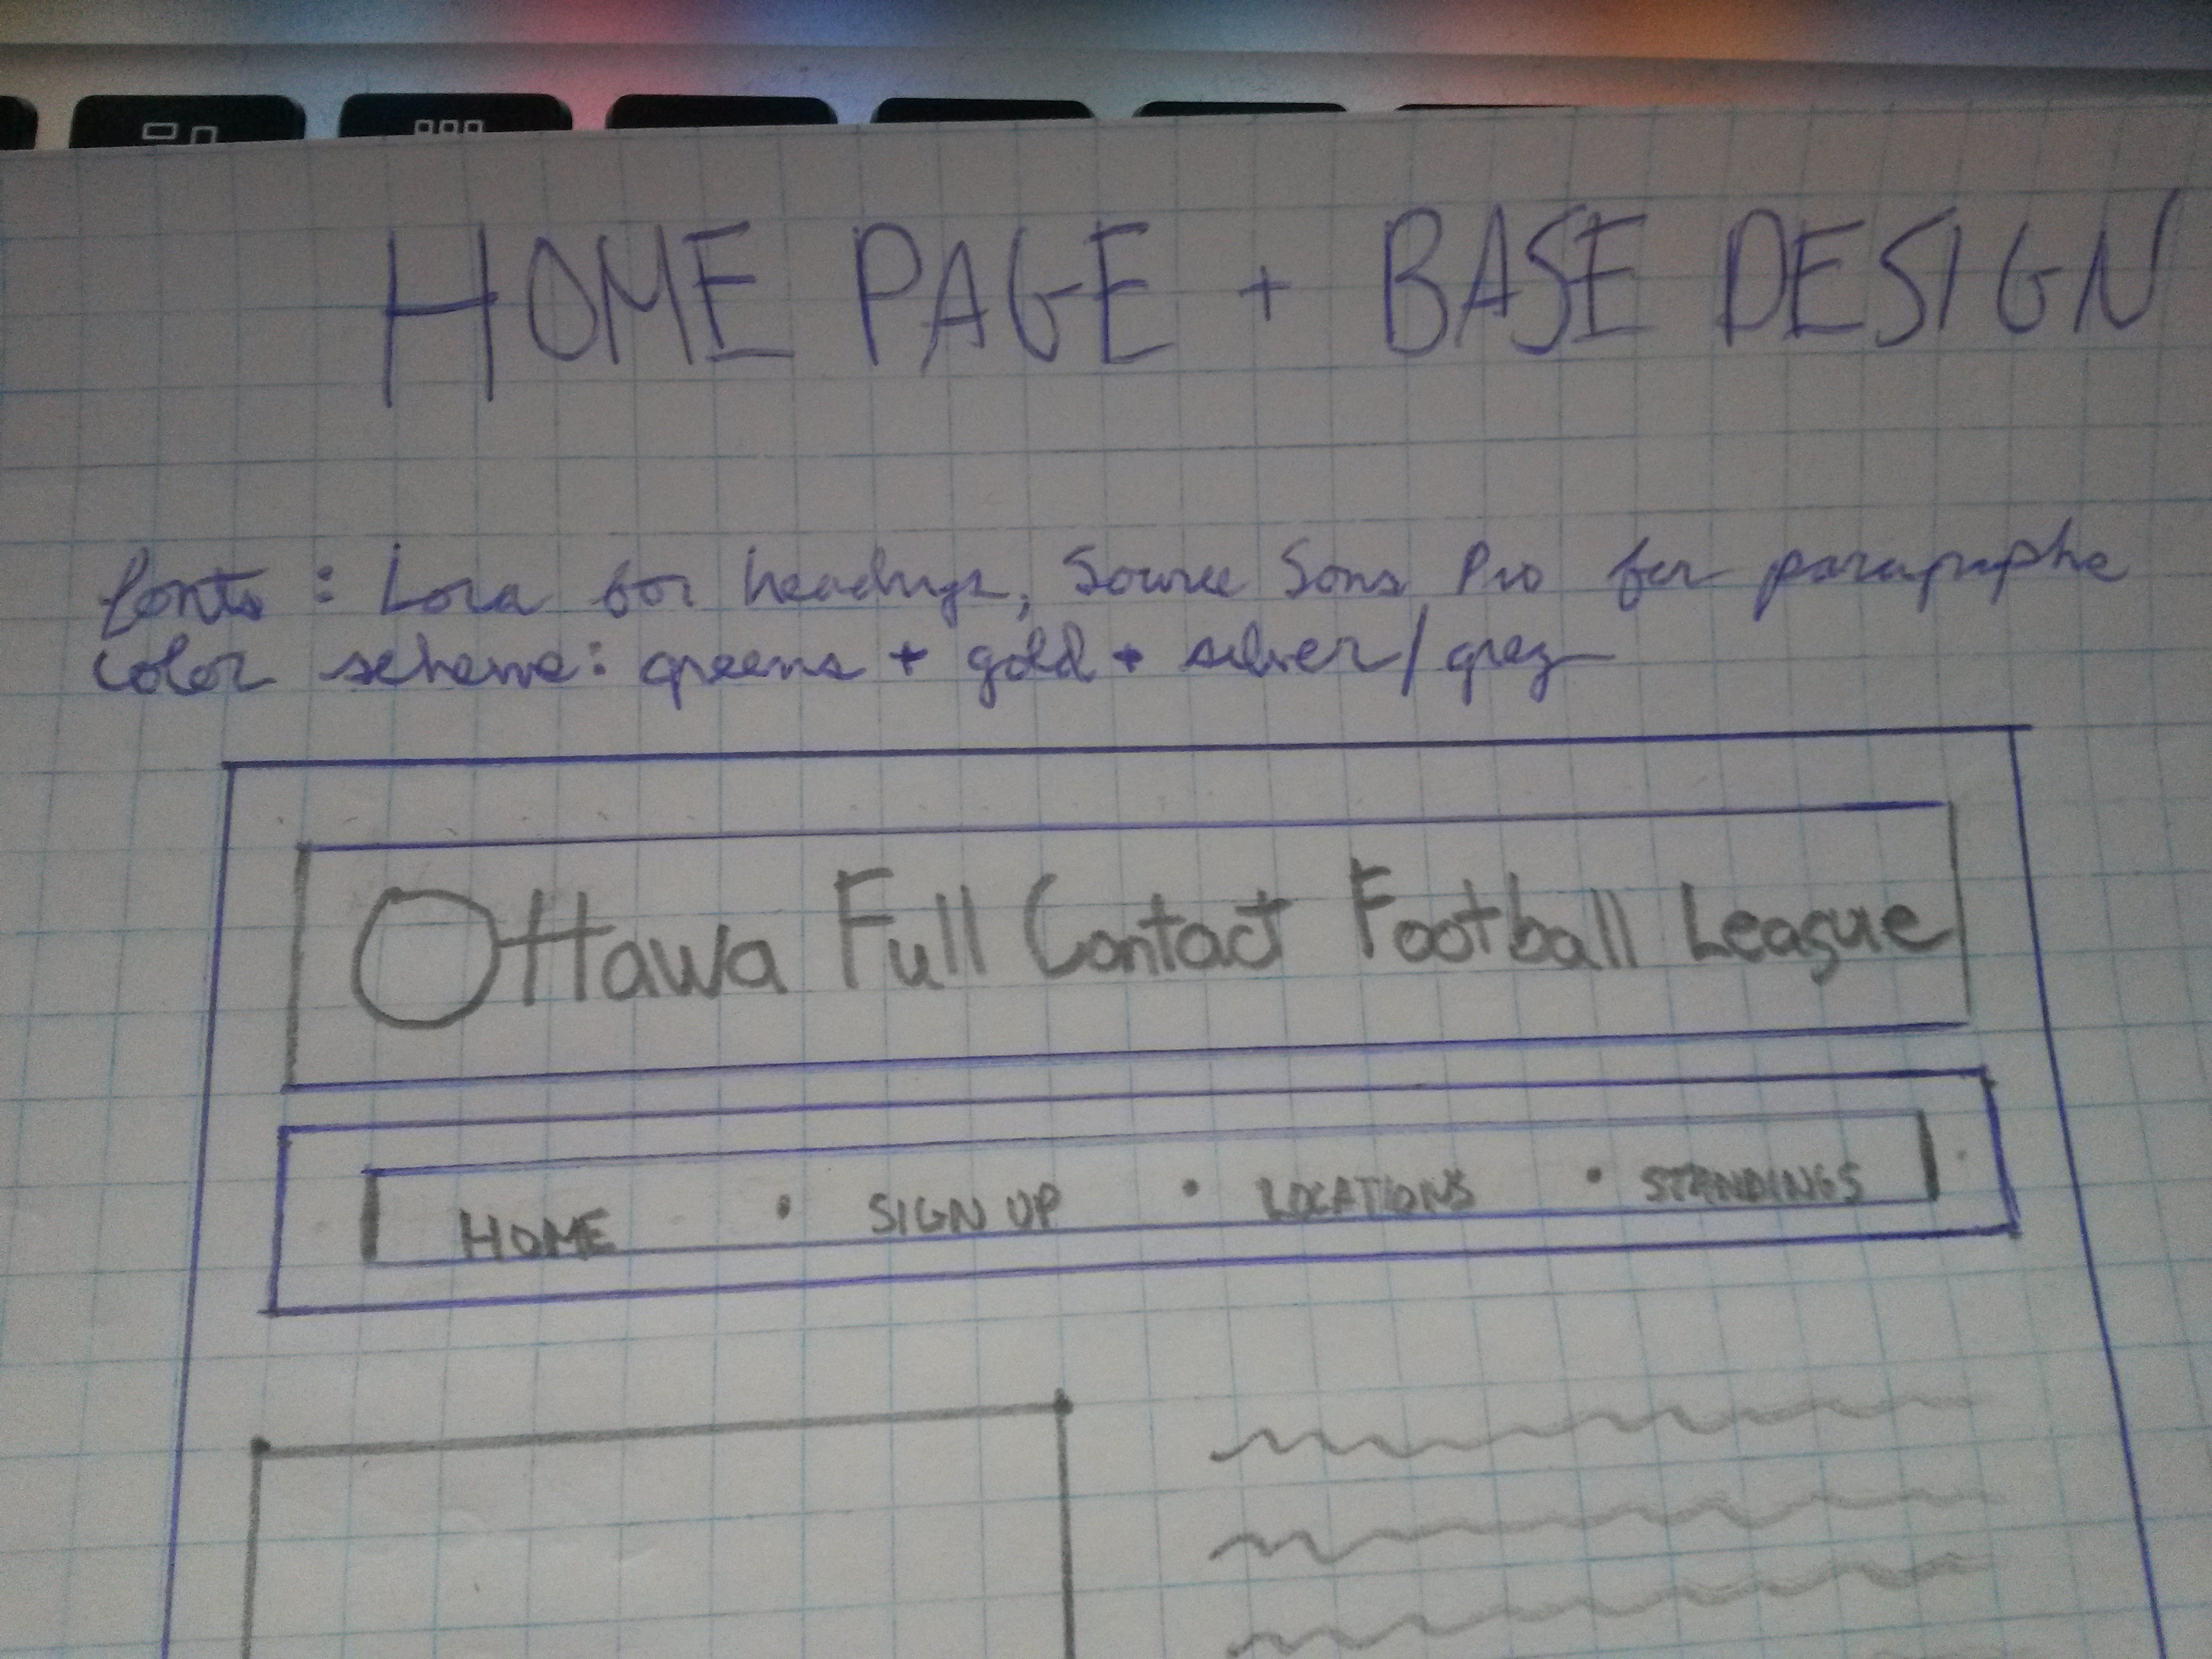 HOME PAGE + BASE DESIGN
fonts : Lora for headings, Source Sans Pro for paragraphs
Color scheme: greens + gold + silver/grey
Ottawa Full Contact Football League
HOME • SIGN UP • LOCATIONS • STANDINGS